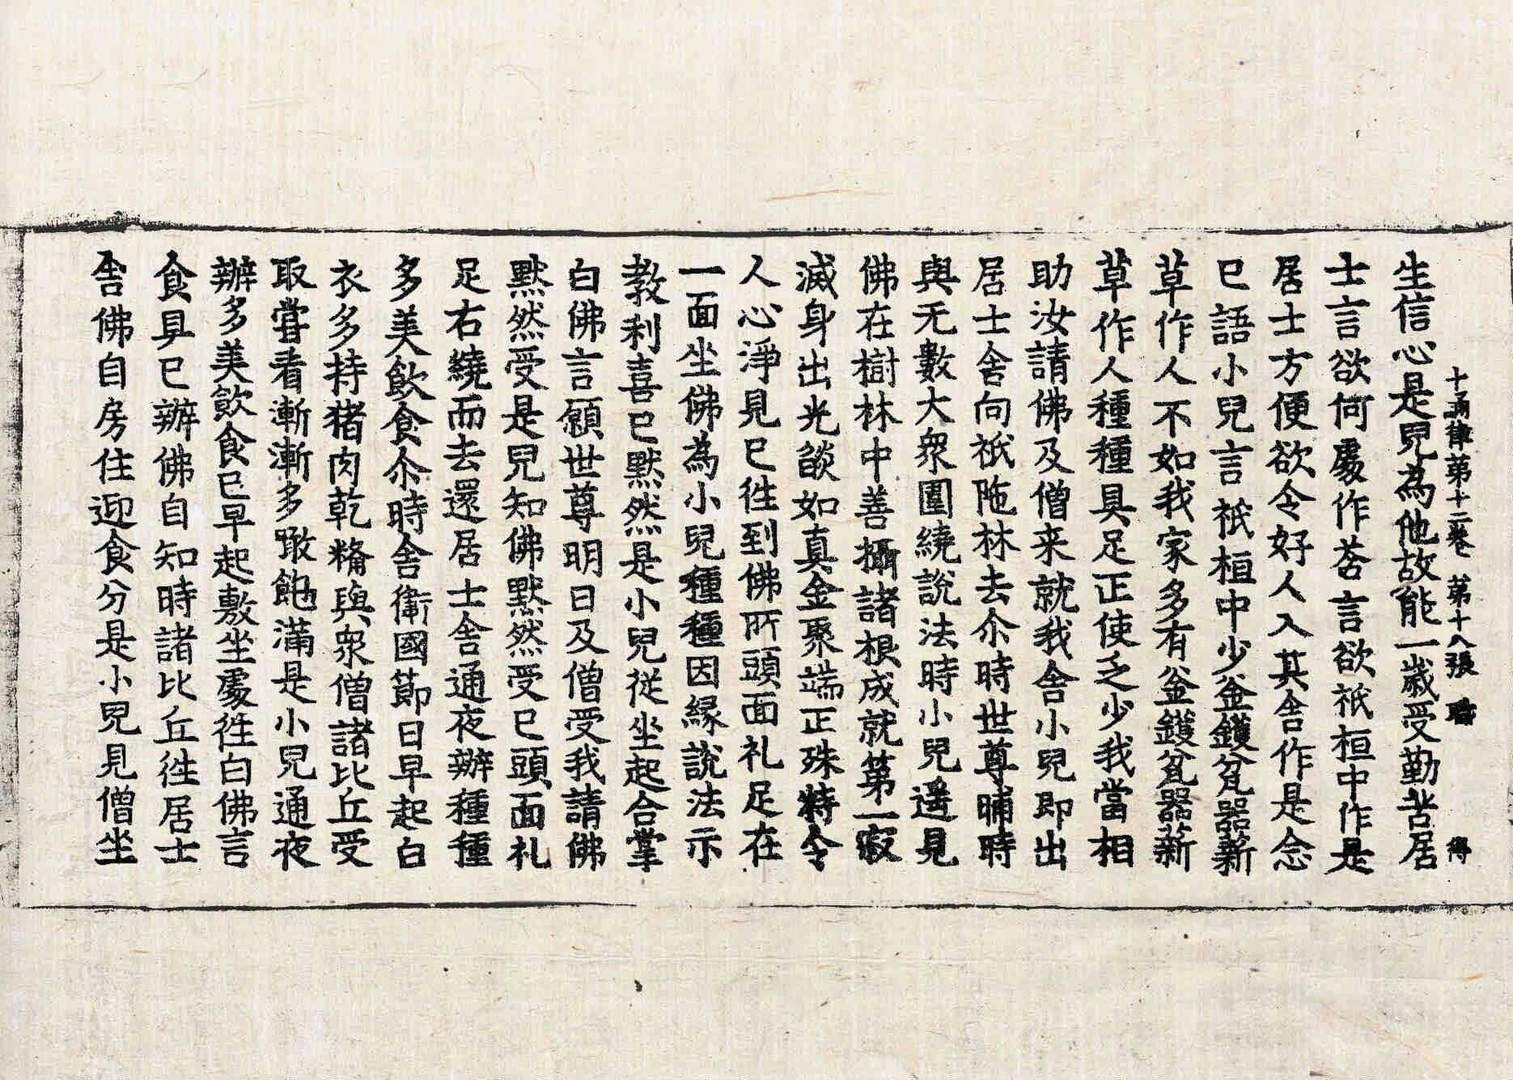 十誦律第十二卷 第十八張 職
得
生信心是兒為他故能一歲受勤苦居
士言欲何處作荅言欲祇桓中作是
居士方便欲令好人入其舍作是念
已語小兒言祇桓中少釜鑊瓫器薪
草作人不如我家多有釜鑊瓫器薪
草作人種種具足正使乏少我當相
助汝請佛及僧来就我舍小兒即出
居士舍向祇陁林去尒時世尊晡時
與无數大衆圍繞說法時小兒遥見
佛在樹林中善攝諸根成就第一寂
滅身出光燄如真金聚端正殊特令
人心淨見已徃到佛所頭面礼足在
一面坐佛為小兒種種因縁說法示
教利喜已默然是小兒従坐起合掌
白佛言願世尊明日及僧受我請佛
默然受是兒知佛默然受已頭面礼
足右繞而去還居士舍通夜辦種種
多美飲食尒時舍衛國節日早起白
衣多持猪肉乾糒與衆僧諸比丘受
取甞看漸漸多噉飽滿是小兒通夜
辦多美飲食已早起敷坐處徃白佛言
食具已辦佛自知時諸比丘徃居士
舍佛自房住迎食分是小兒見僧坐